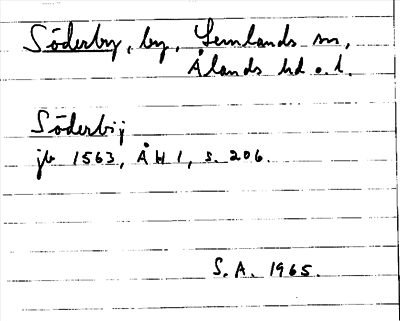 Söderby, by, Lemlands sn,
Ålands hd o. l.
Söderbij
jb 1563, ÅH 1, s. 206.
S. A. 1965.